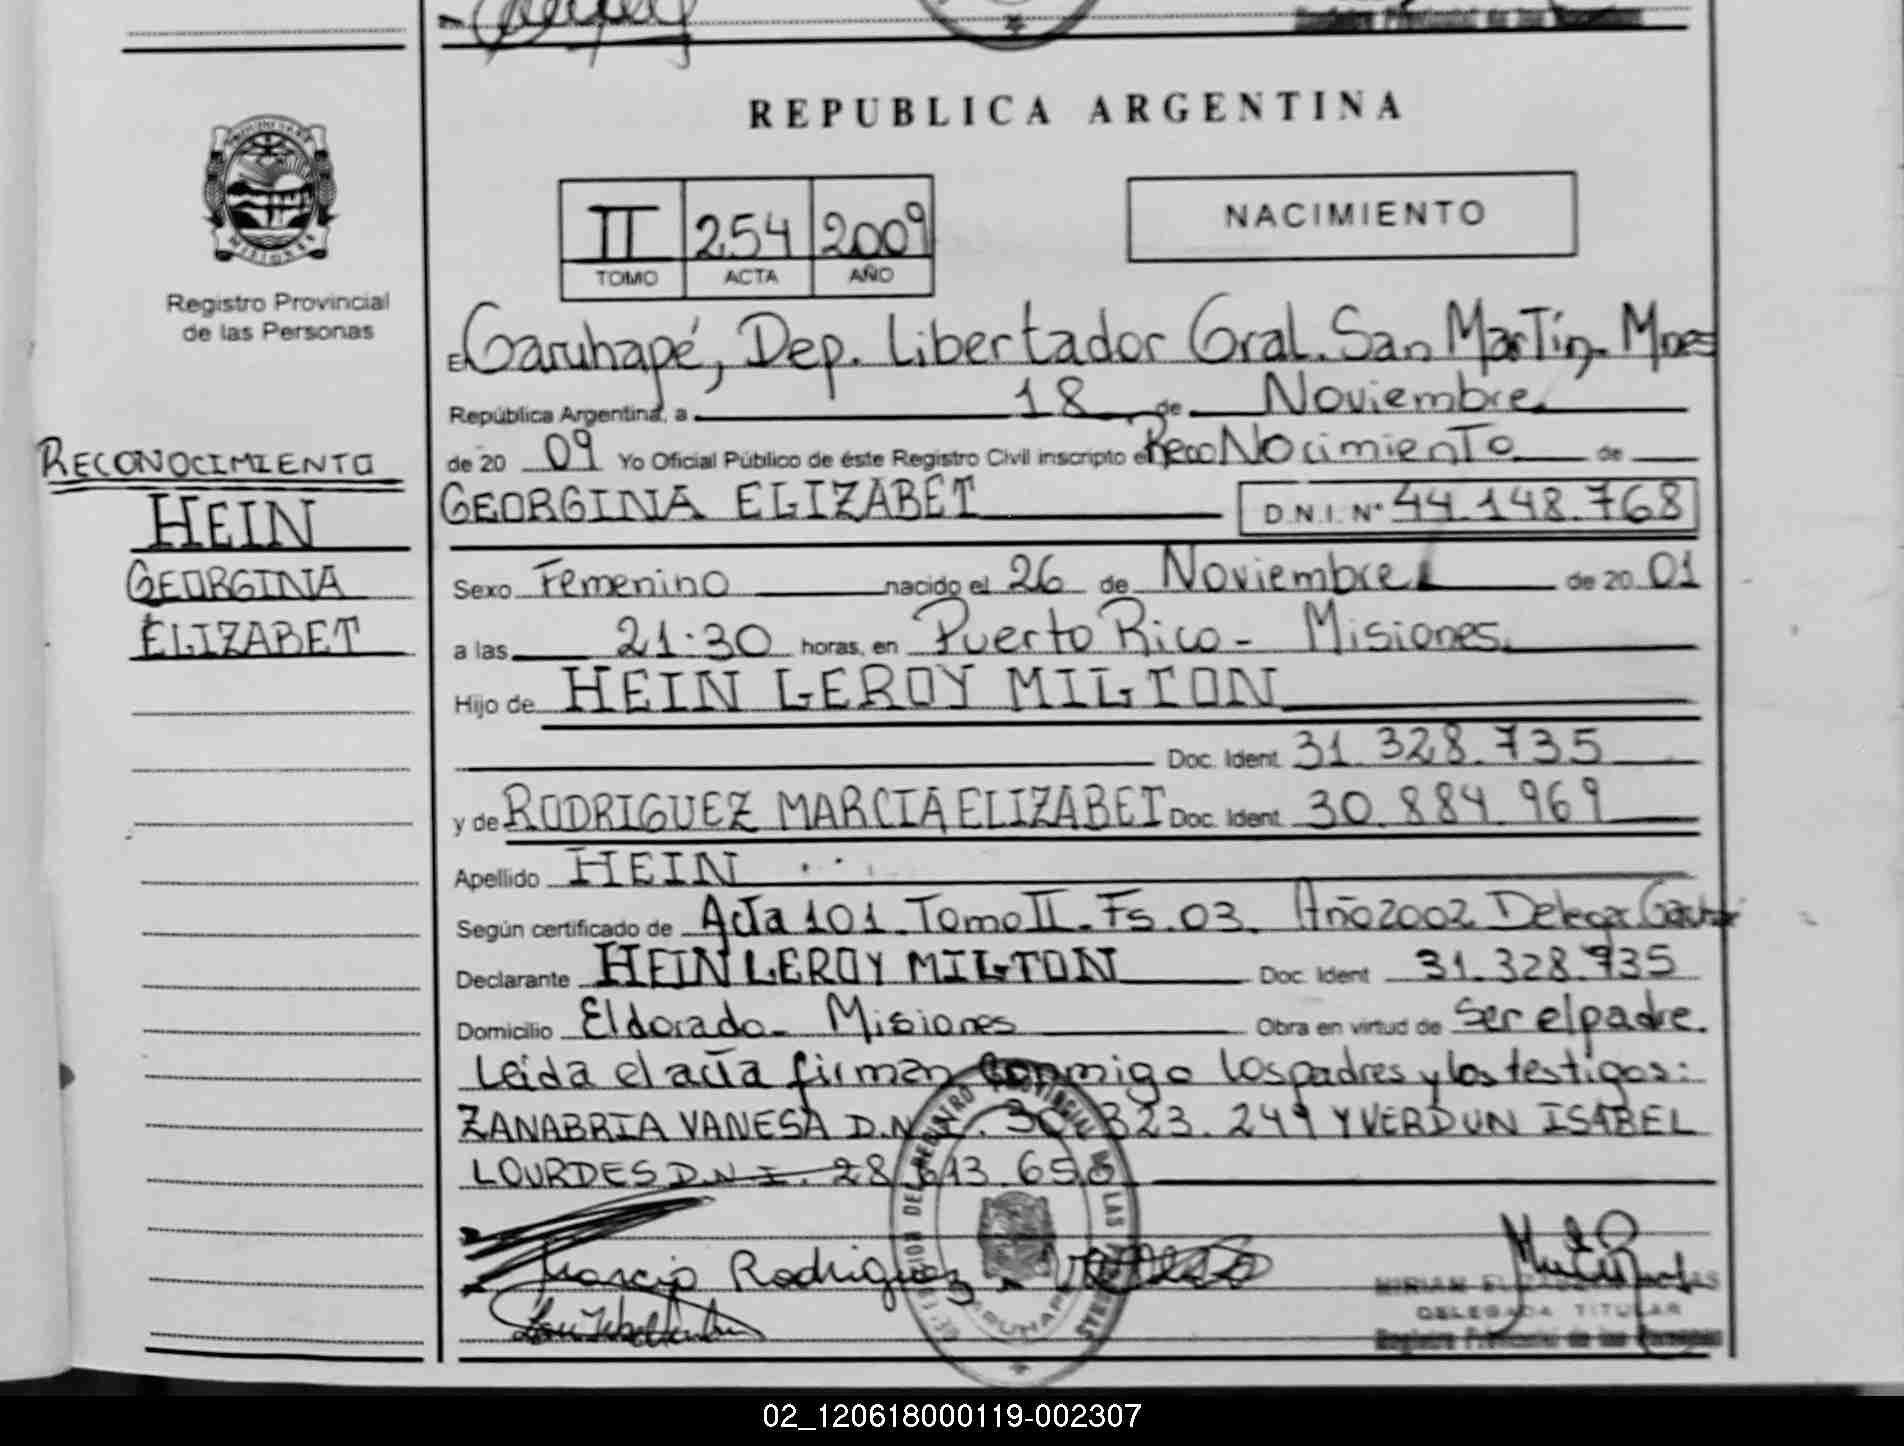 Registro Provincial de las Personas
REPUBLICA ARGENTINA
II 254 2009
TOMO ACTA AÑO
NACIMIENTO
MISIONES
Registro Provincial
de las Personas
RECONOCIMIENTO
HEIN
GEORGINA
ELIZABET
E Garuhapé, Dep. Libertador Gral. San Martín. Mnes
República Argentina, a 18 de Noviembre
de 20 09 Yo Oficial Público de éste Registro Civil inscripto e RecoNocimiento de
GEORGINA ELIZABET D.N.I. Nº 44.148.768
Sexo Femenino nacido el 26 de Noviembre de 20 01
a las 21:30 horas, en Puerto Rico - Misiones.
Hijo de HEIN LEROY MILTON
Doc. Ident. 31.328.735
y de RODRIGUEZ MARCIA ELIZABET Doc. Ident. 30.884.969
Apellido HEIN
Según certificado de Acta 101. Tomo II. Fs. 03. Año 2002
Declarante HEIN LEROY MILTON Doc. Ident 31.328.735
Domicilio Eldorado - Misiones Obra en virtud de ser el padre.
Leida el acta firman conmigo los padres y los testigos:
ZANABRIA VANESA D.N.I. 30.323.249 Y VERDUN ISABEL
LOURDES D.N.I. 28.613.650
Rodriguez
DELEGADA TITULAR
Registro Provincial de las Personas
02_120618000119-002307